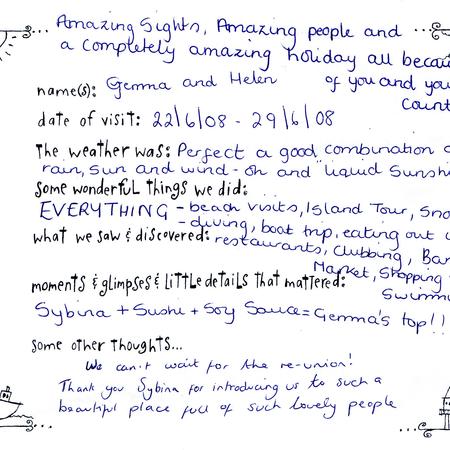 Amazing Sights, Amazing people and
a completely amazing holiday all becau
of you and you
Count
name(s): Gemma and Helen
date of visit: 22/6/08 - 29/6/08
the weather was: Perfect a good combination o
rain, sun and wind - oh and liquid Sunsh
some wonderful things we did:
EVERYTHING - beach visits, Island Tour, Sno
- diving, boat trip, eating out
what we saw & discovered: restaurants, Clubbing, Bar
Market, Shopping
Swimmi
moments & glimpses & little details that mattered:
Sybina + Sushi + Soy Sauce = Gemma's top!!
some other thoughts...
We can't wait for the re-union!
Thank you Sybina for introducing us to such a
beautiful place full of such lovely people